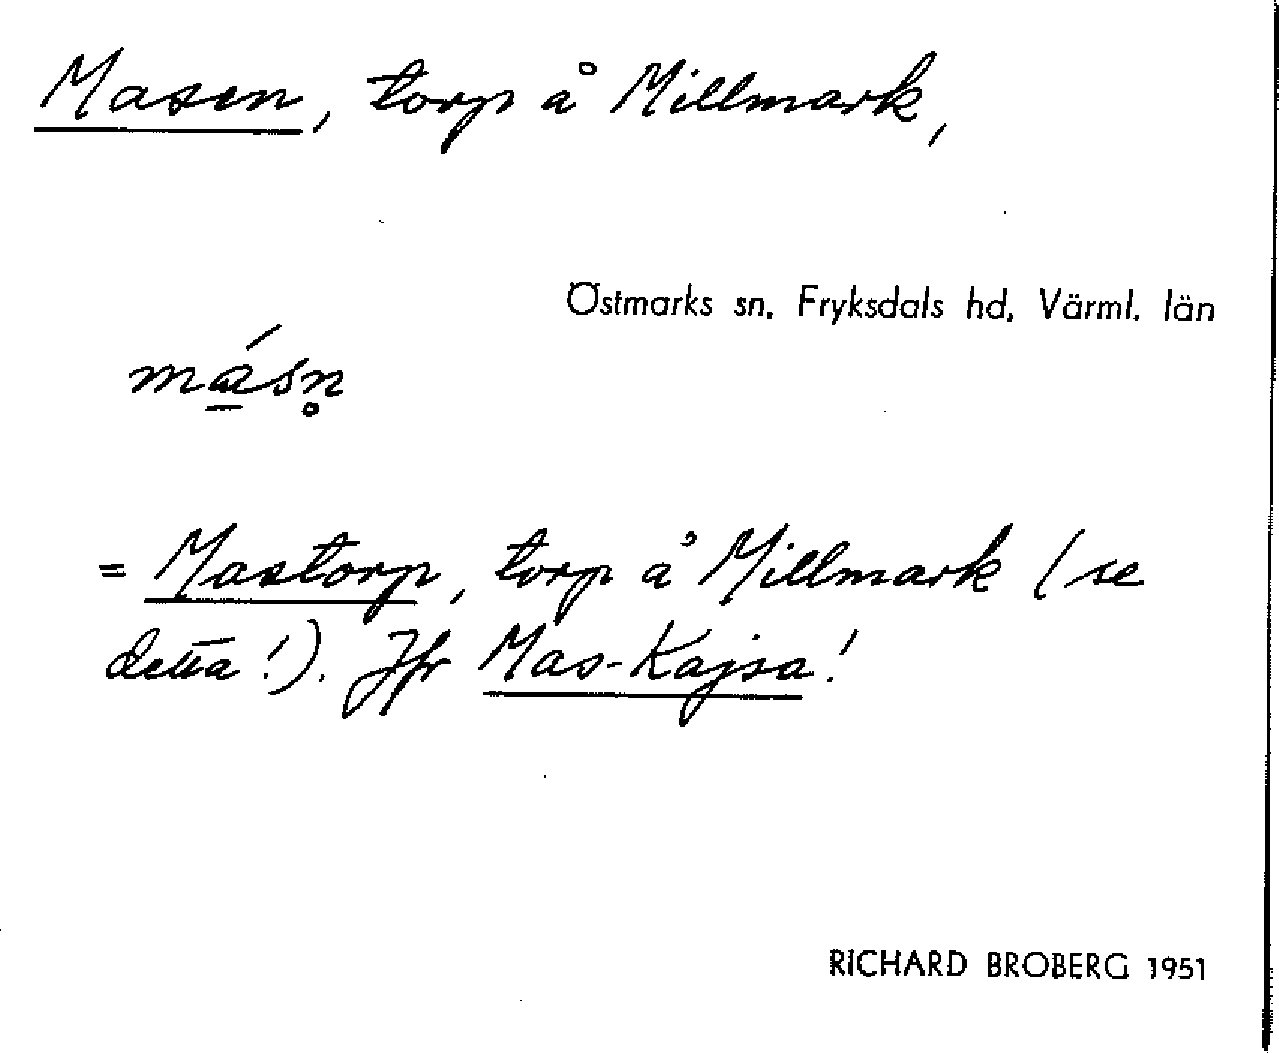 Masen, torp å Millmark,
Östmarks sn, Fryksdals hd, Värml. län
má̱sn̥
= Mastorp, torp å Millmark (se
detta!). Jfr Mas-Kajsa!
RICHARD BROBERG 1951